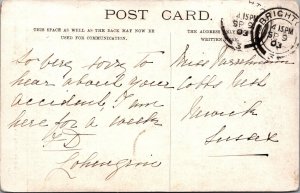 POST CARD.
THIS SPACE AS WELL AS THE BACK MAY NOW BE
USED FOR COMMUNICATION.
THE ADDRESS ONLY
WRITTEN
BRIGHT
4.15PM
SP 5
03
So very sorry to
hear about your
accident, I am
here for a week
Lohengrin
Miss
Newick
Sussex